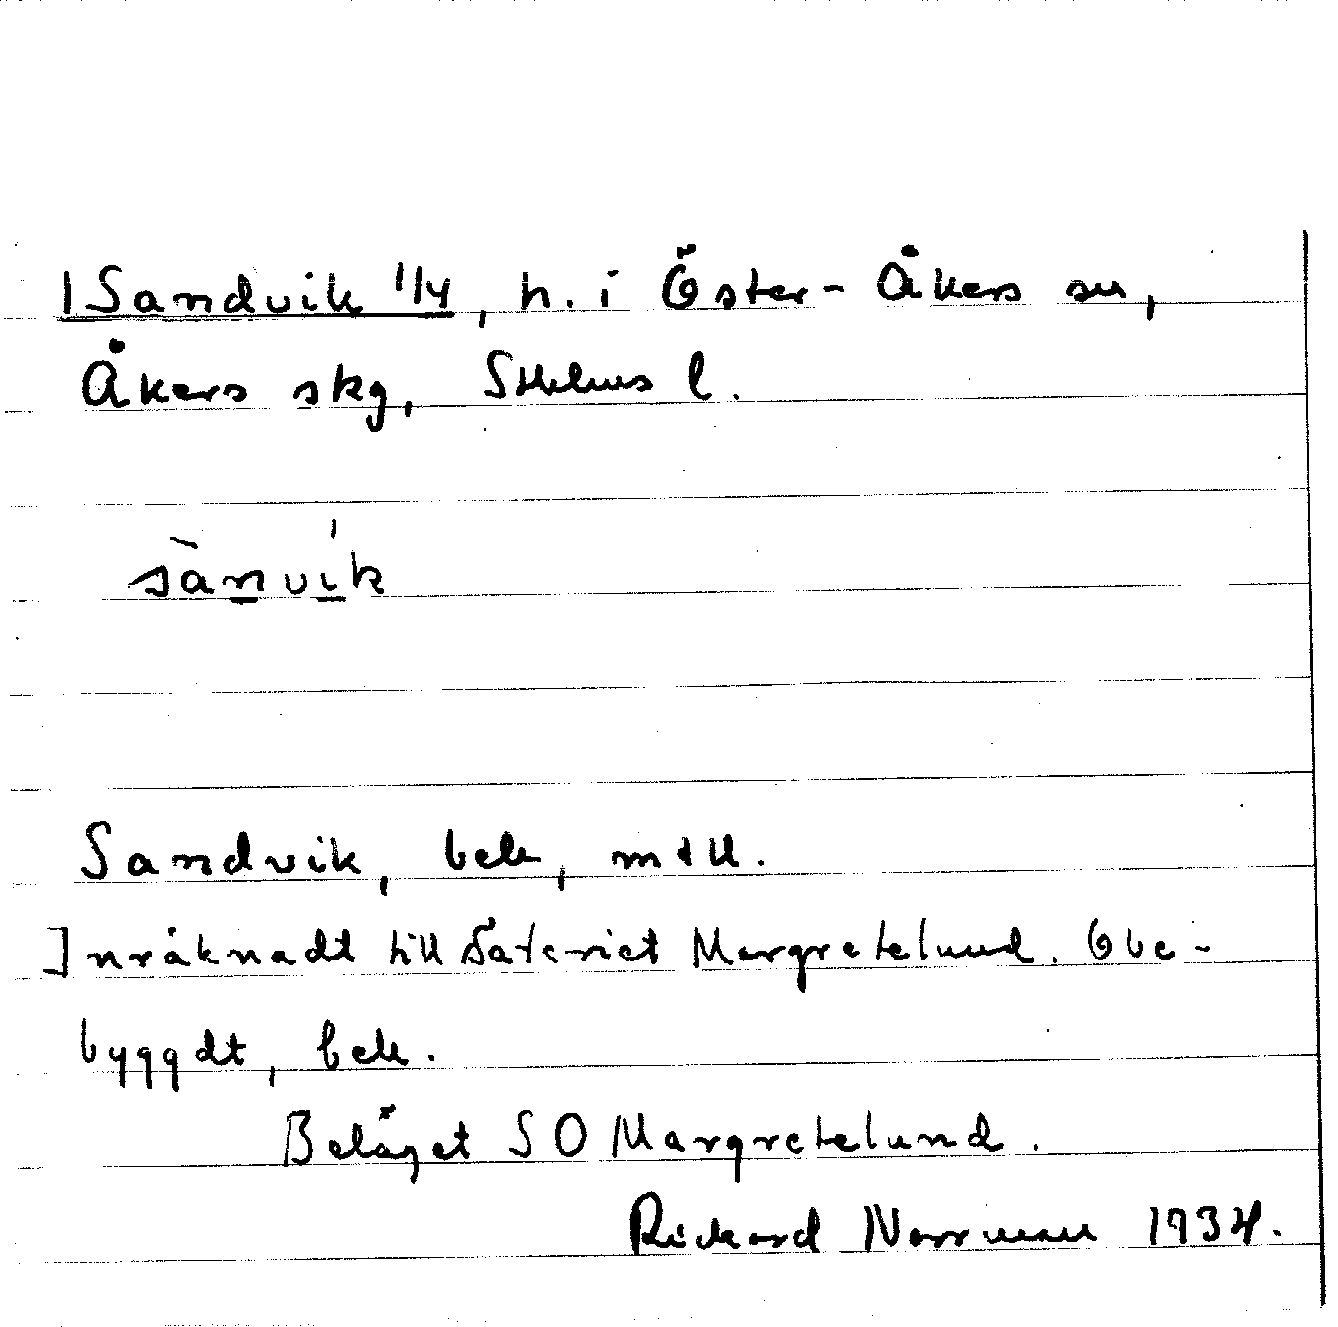 1 Sandvik 1/4, h. i Öster-Åkers sn,
Åkers skg, Sthlms l.
sànvík
Sandvik, bek, mtll.
Inräknadt till Säteriet Margretelund. Obe-
byggdt, bek.
Beläget SO Margretelund.
Rickard Norrman 1934.